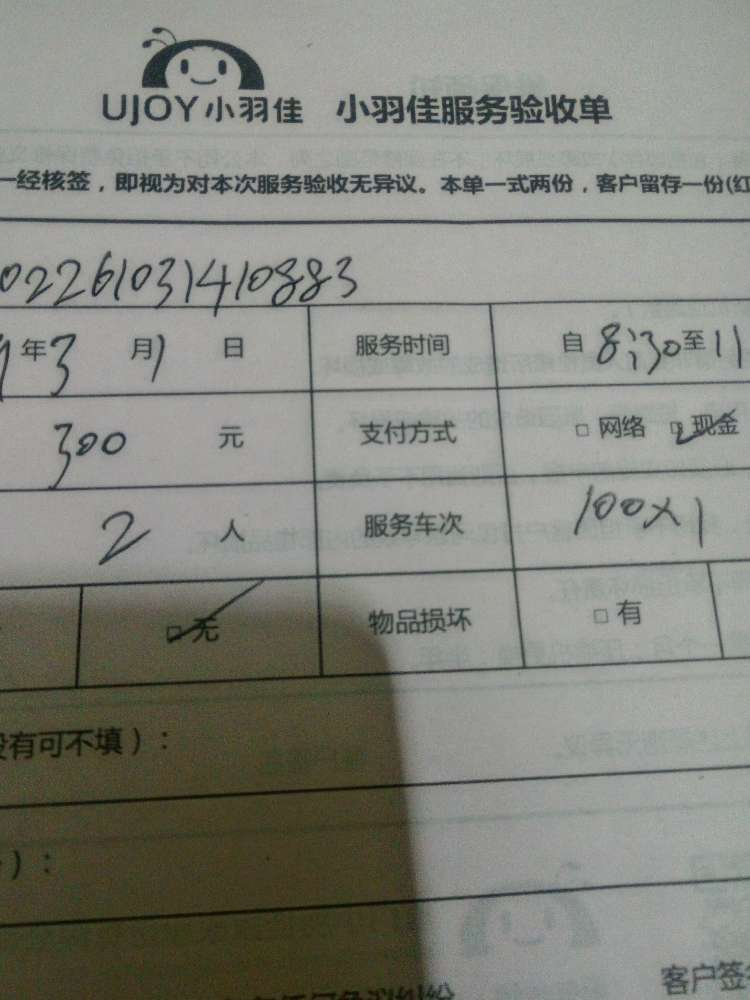 UJOY小羽佳 小羽佳服务验收单
一经核签，即视为对本次服务验收无异议。本单一式两份，客户留存一份(红
02261031410883
年3月1日 服务时间 自8:30至11
300元 支付方式 □网络 □现金
2人 服务车次 100×1
□无 物品损坏 □有
没有可不填）：
）：
客户签